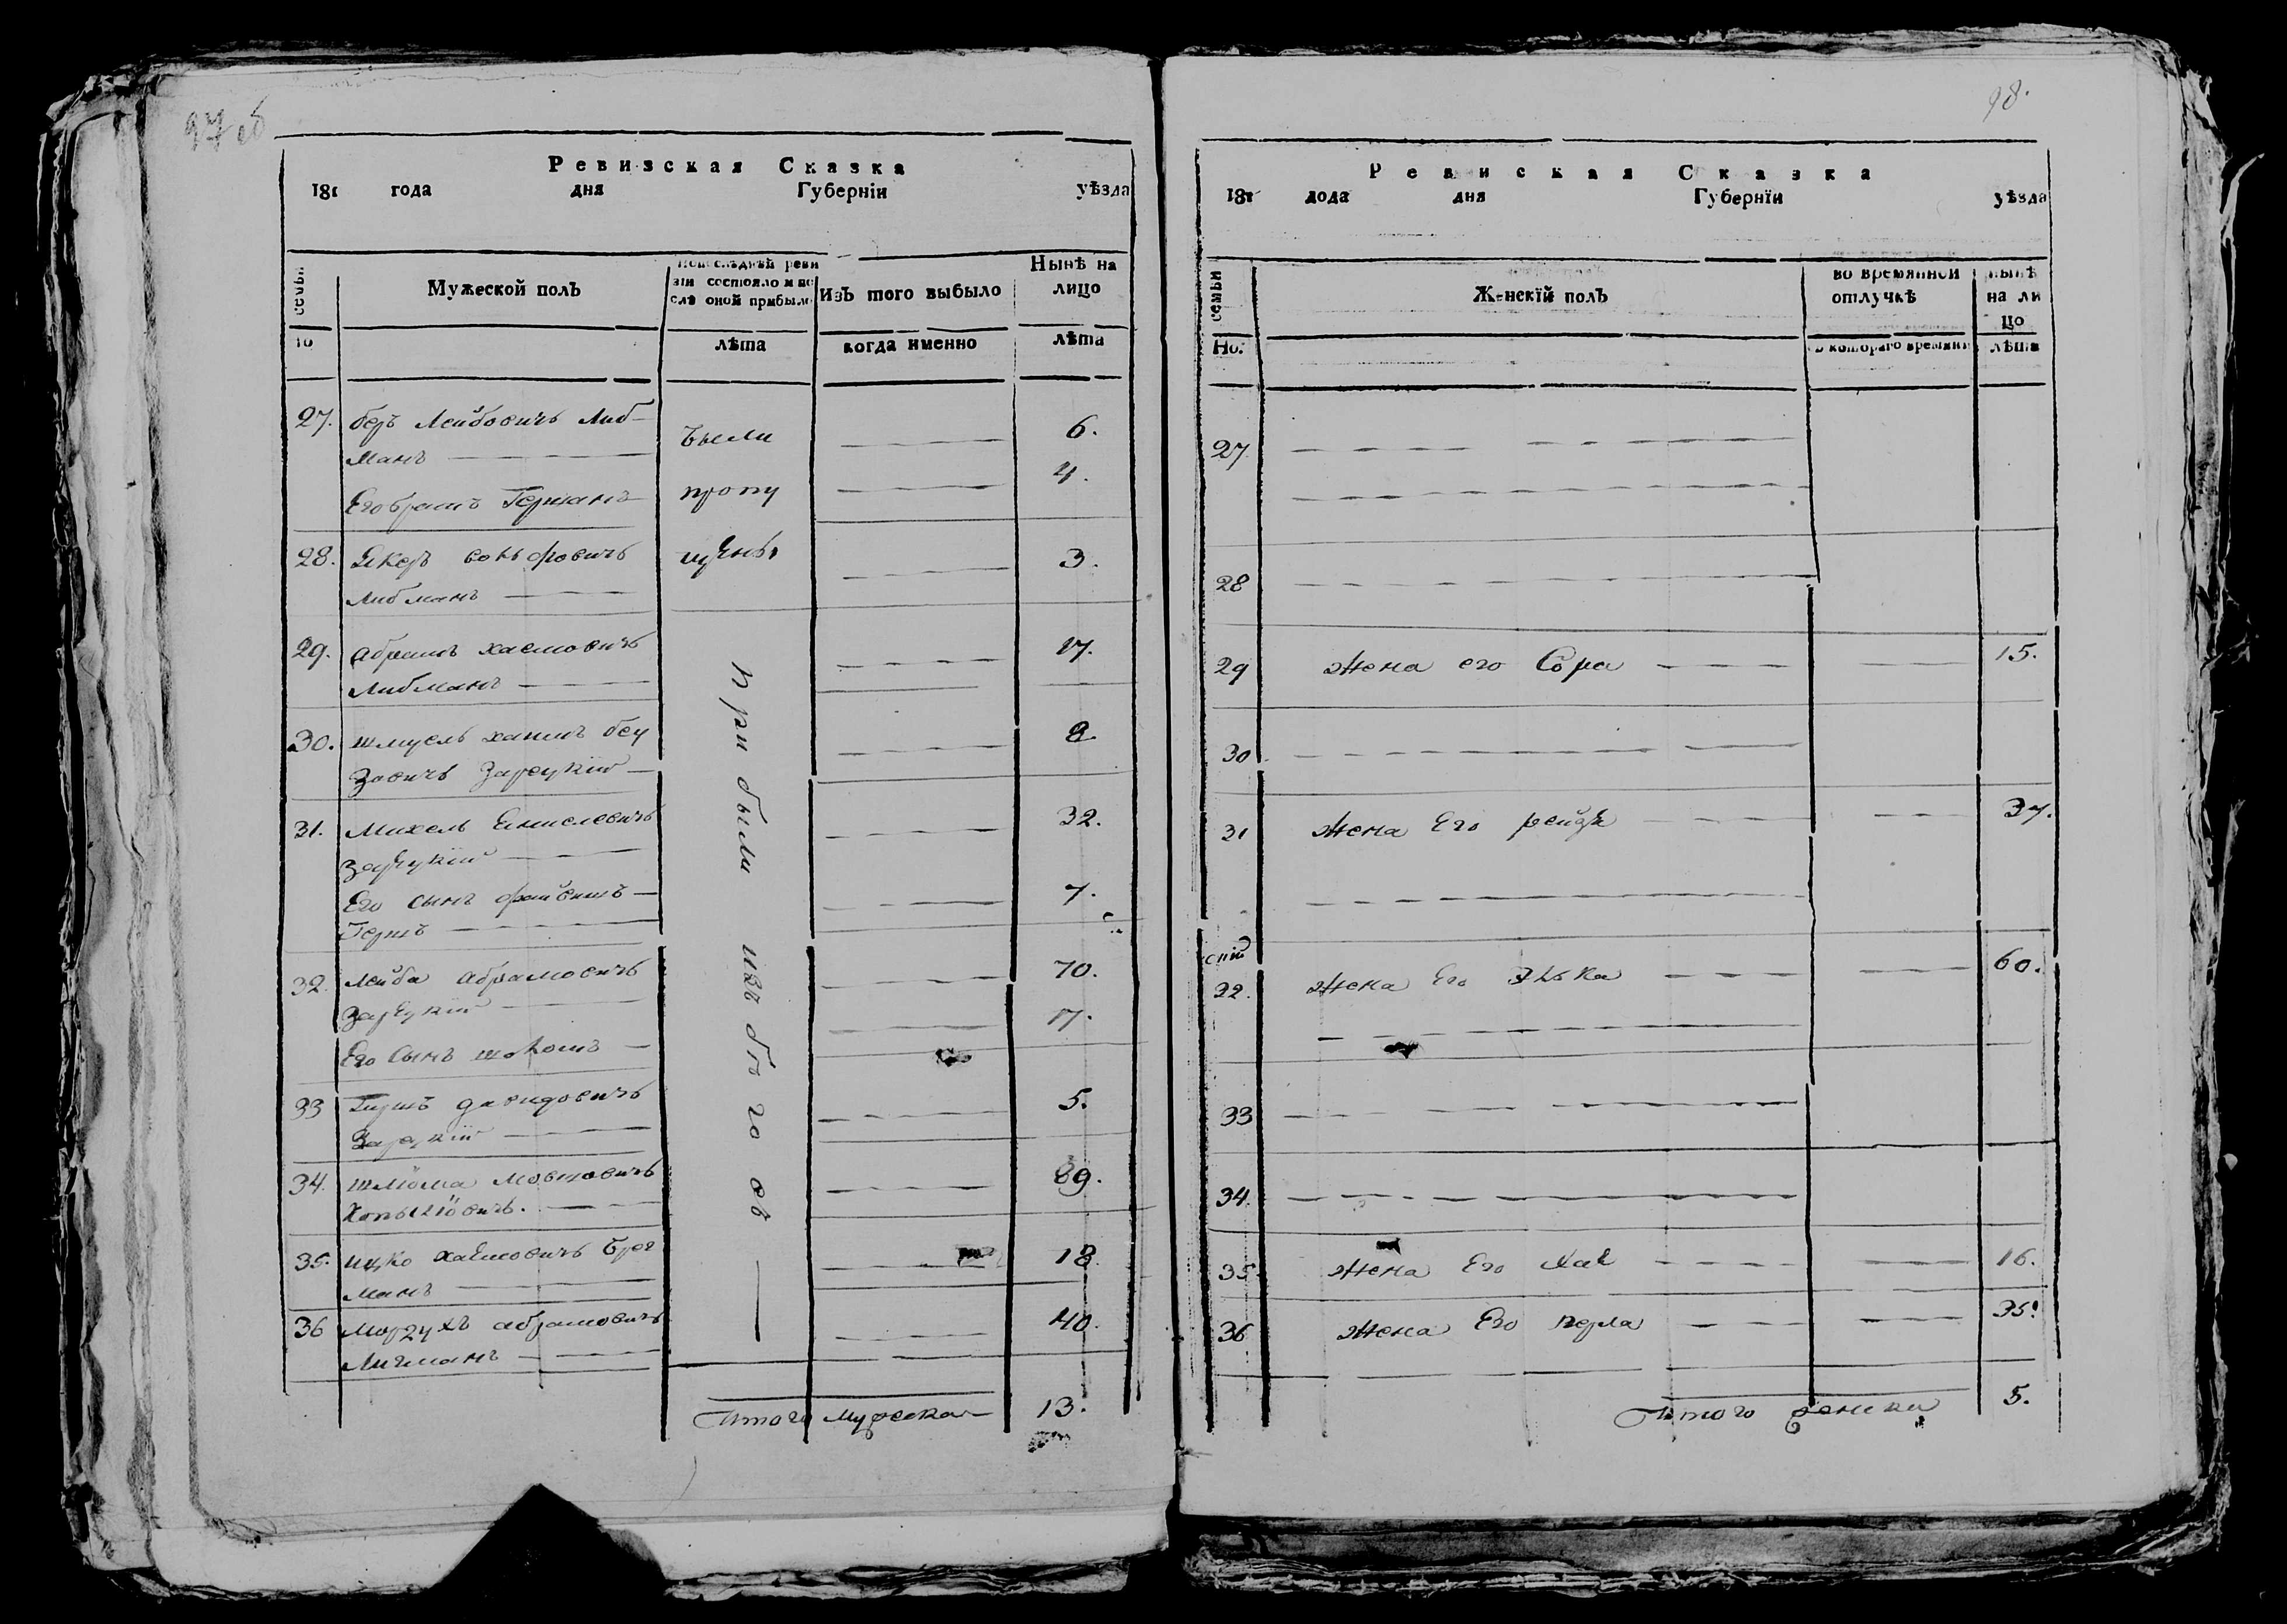 97 об
Ревизская Сказка
181 года дня Губернїи уѣзда
семьи
Мужеской полЪ
Попослѣдней реви
зїи состояло и по
слѣ оной прибыло
ИзЪ того выбыло
Нынѣ на
лицо
лѣта
когда именно
лѣта
27. беръ Лейбовичъ Либ-
манъ
были
6.
Его братъ Германъ
пропу
4.
28. Якеръ вольфовичъ
Либманъ
щены
3.
29. абрамъ хаемовичъ
Либманъ
17.
30. шмуель хаимъ беу
Зовичъ Зарецкїй
8.
31. Михель Емиелевичъ
Зарецкїй
32.
Его сынъ файвишъ
Гершъ
7.
32. Лейба абрамовичъ
Зарецкїй
70.
Его сынъ шоломъ
17.
33 Гиршъ давидовичъ
Зарецкїй
5.
34. шлїома мовшовичъ
Копыловичъ.
89.
35. ицко хаемовичъ Брег
манъ
18.
36 Мордухъ абрамовичъ
Лигманъ
40.
прибыли изъ бѣговъ
Итого мужеска
13.
98.
Ревиская Сказка
181 дода дня Губернїи уѣзда
семьи
Но.
Женскїй полЪ
во времянной
отлучкѣ
съ котораго времяни
нынѣ
на ли
цо
лѣта
27
28
29 жена его Сора 15.
30
31 жена Его рейза 37.
32. жена Его Элька 60.
33
34.
35. жена Его хае 16.
36 жена Его перла 35.
Итого женска 5.